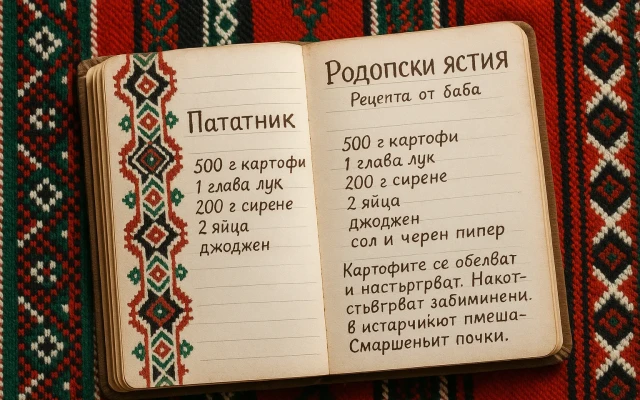 Пататник
500 г картофи
1 глава лук
200 г сирене
2 яйца
джоджен
Родопски ястия
Рецепта от баба
500 г картофи
1 глава лук
200 г сирене
2 яйца
джоджен
сол и черен пипер
Картофите се обелват
и настъргрват. Накот-
стьвгрват забиминени.
в истарчиќют пмеша-
Смаршеньит почки.